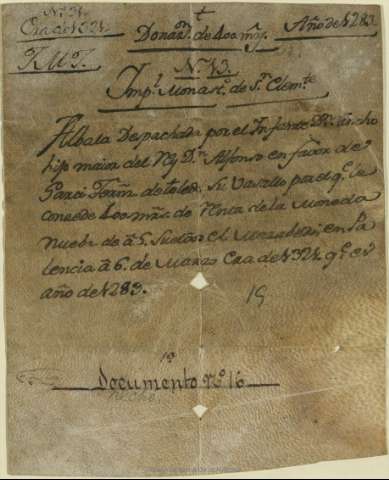 Nº 31.
Era de 1321.
t
Donaz.n de 400 mrs.
Año de 1283
F. M. T.
Nº 13.
Imp.l Monast.o de S.n Clem.te
Albala Despachada por el Infante D.n Sancho
hijo maior del Rey D.n Alfonso en favor de
Garci Ferrn. de toledo, su Vasallo por el q.e le
concede 400 mrs. de Renta de la Moneda
nueba de à 5 sueldos el Maravedi; en Pa
lencia à 6. de Marzo Era de 1321. q.e es
año de 1283.
19
Documento nº 16